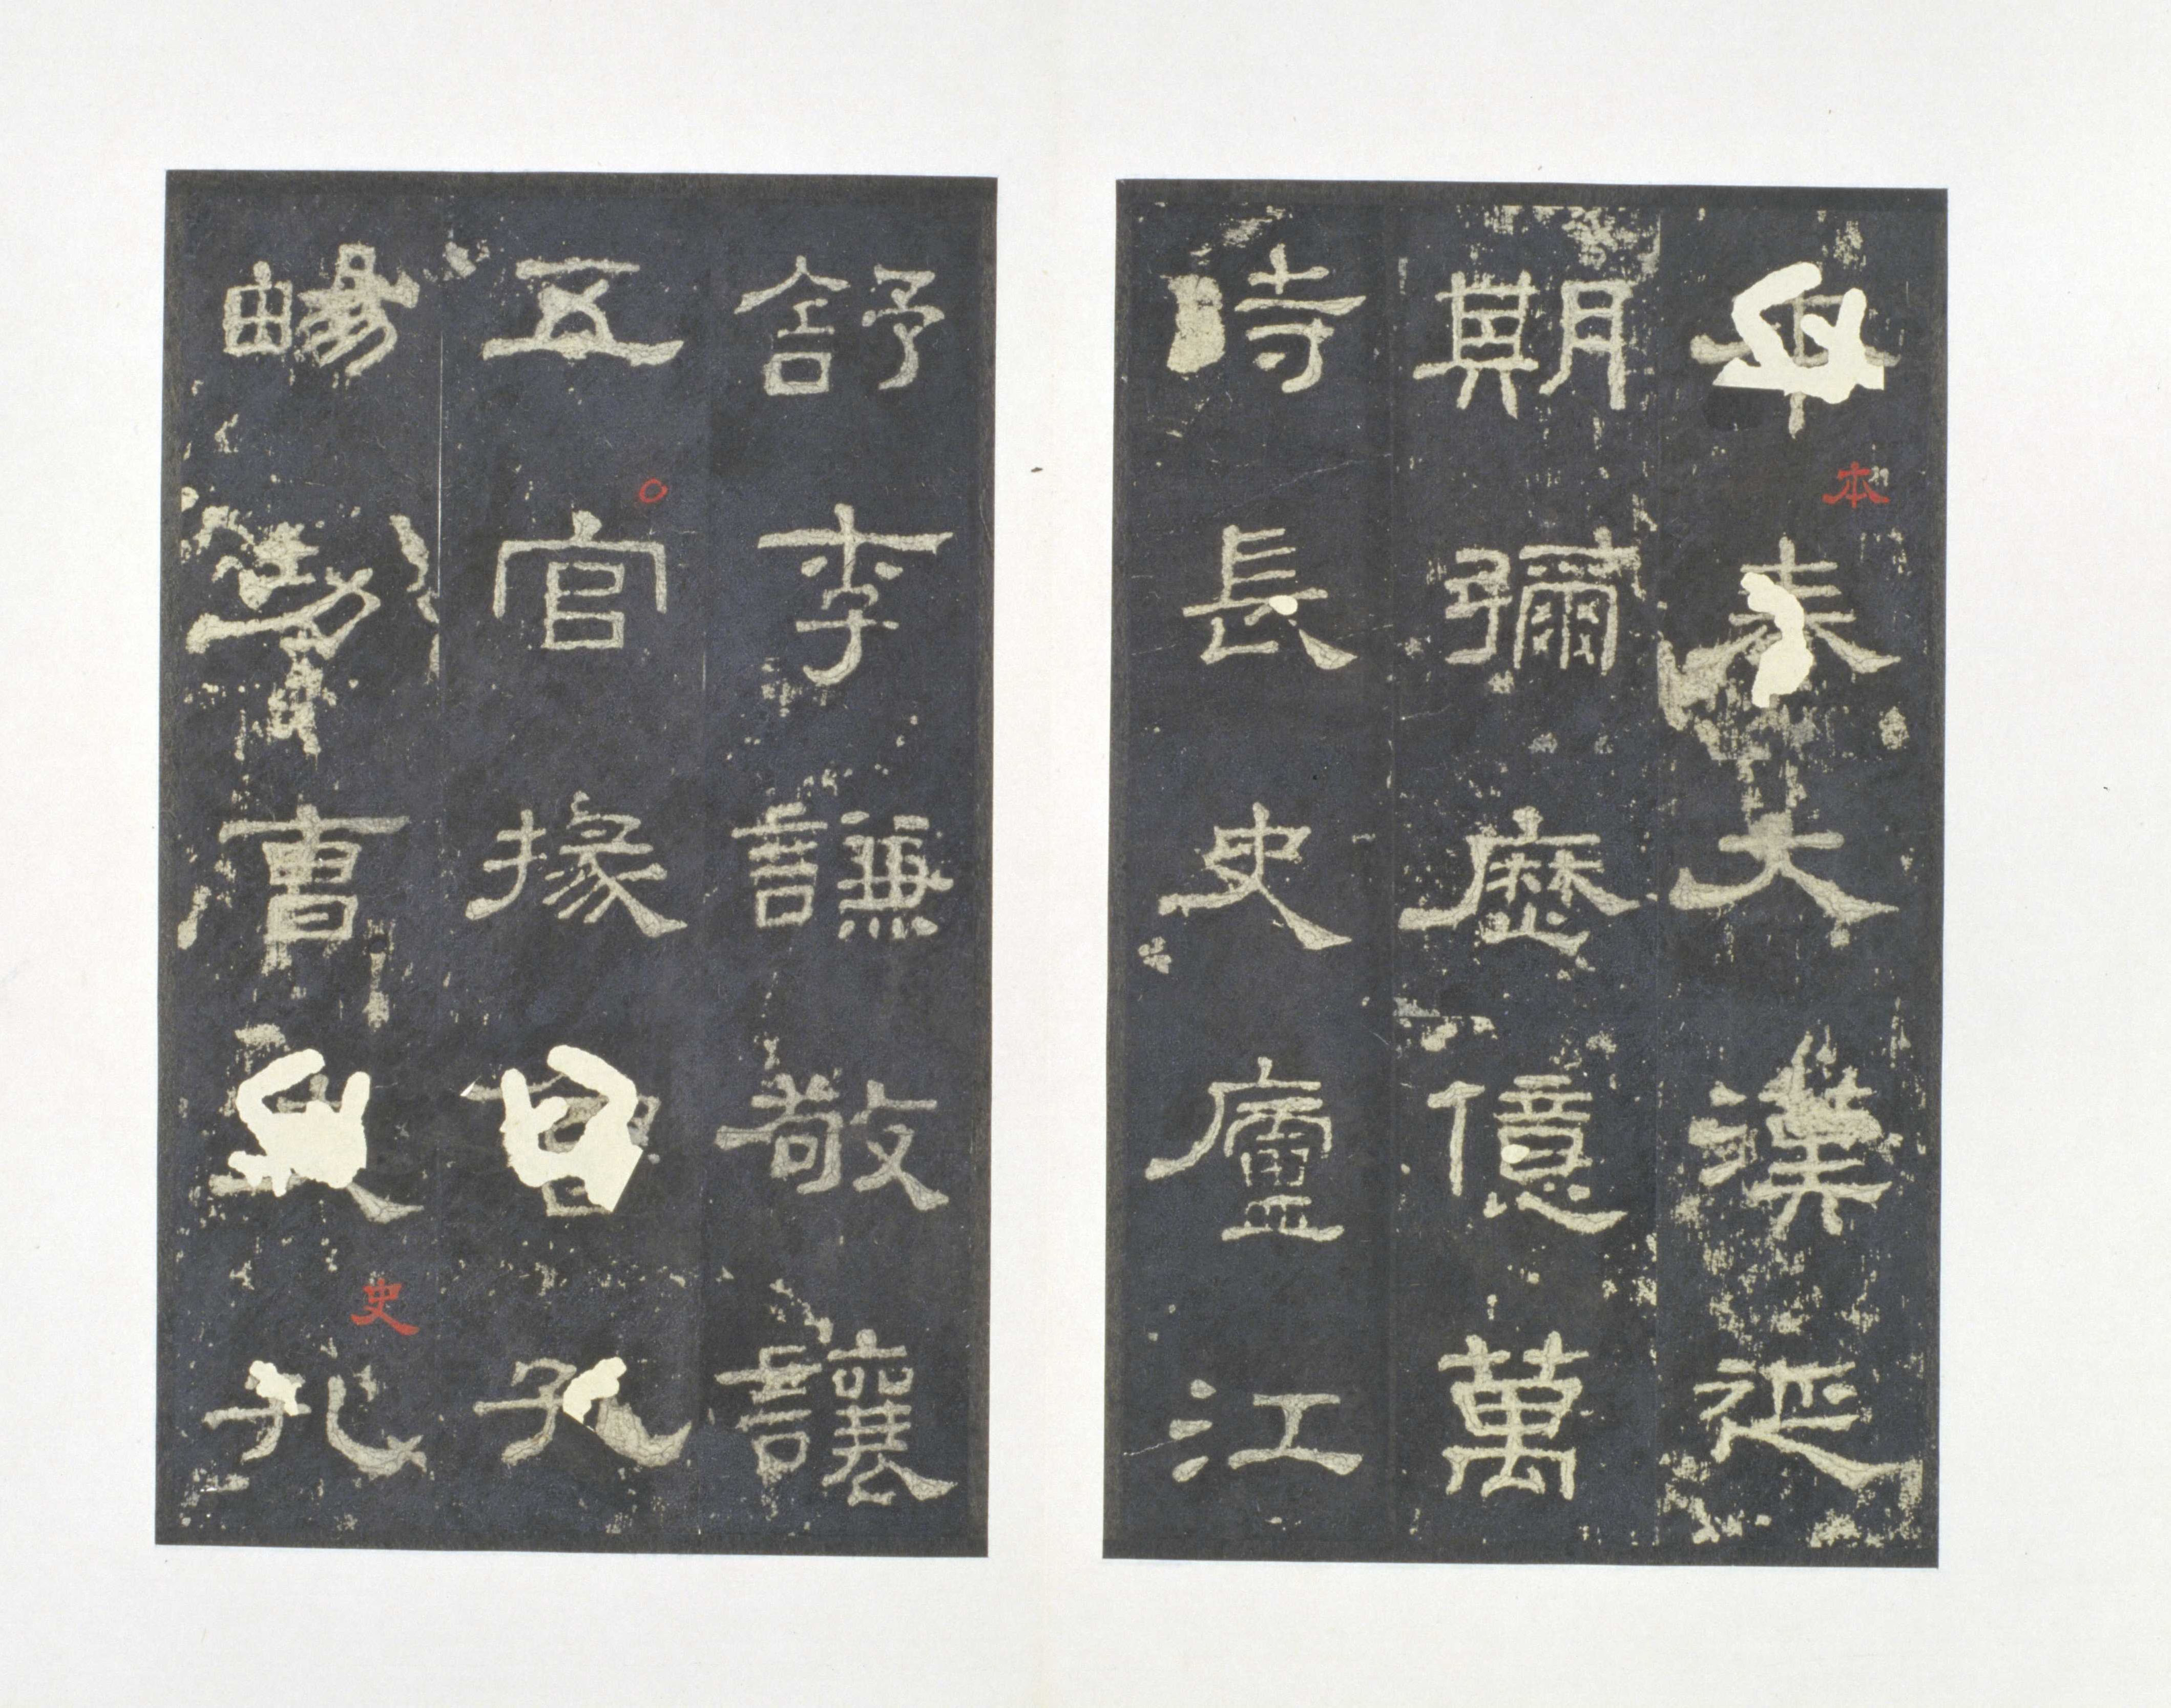 本奏大漢延
本
期彌歷億萬
時長史廬江
舒李謙敬讓
五官掾魯孔
暢功曹史孔
史